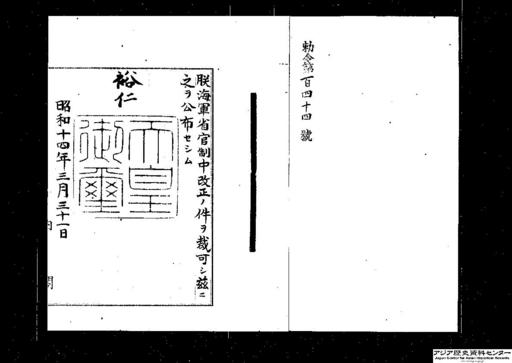 勅令第百四十四號
朕海軍省官制中改正ノ件ヲ裁可シ茲ニ
之ヲ公布セシム
裕仁
天皇御璽
昭和十四年三月三十一日
内閣
アジア歴史資料センター
Japan Center for Asian Historical Records